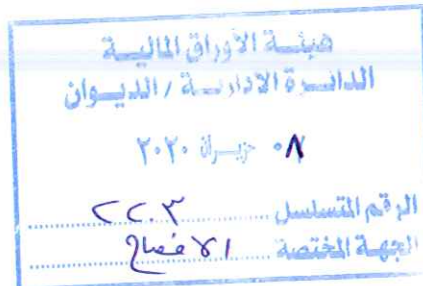 هيئة الأوراق المالية
الدائرة الادارية / الديوان
٠٨ حزيران ٢٠٢٠
الرقم المتسلسل ........ ٢٢٠٣
الجهة المختصة ........ الافصاح